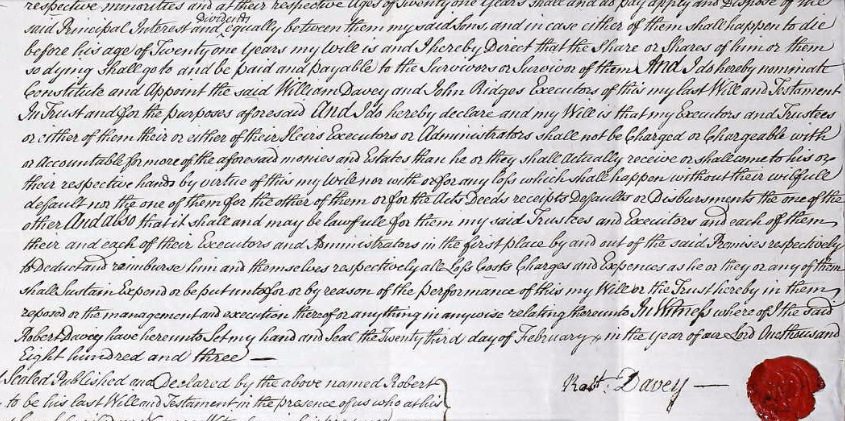 respective minorities and at their respective Ages of Twenty one Years shall and do pay apply and Dispose of the
Dividends
said Principal Interest and equally between them my said Sons, and in case either of them shall happen to die
before his age of Twenty one Years my Will is and I hereby Direct that the Share or Shares of him or them
so dying shall go to and be paid and payable to the Survivors or Survivor of them And I do hereby nominate
Constitute and Appoint the said William Davey and John Ridges Executors of this my last Will and Testament
In Trust and for the purposes aforesaid And I do hereby declare and my Will is that my Executors and Trustees
or either of them their or either of their Heirs Executors or Administrators shall not be Charged or Chargeable with
or Accountable for more of the aforesaid monies and Estates than he or they shall actually receive or shall come to his or
their respective hands by virtue of this my Will nor with or for any Loss which shall happen without their wilfull
default nor the one of them for the other of them or for the Acts Deeds receipts Defaults or Disbursments the one of the
other And also that it shall and may be lawfull for them my said Trustees and Executors and each of them
their and each of their Executors and Administrators in the first place by and out of the said Premises respectively
to Deduct and reimburse him and themselves respectively all Loss Costs Charges and Expences as he or they or any of them
shall Sustain Expend or be put unto for or by reason of the performance of this my Will or the Trust hereby in them
reposed or the management and execution thereof or any thing in any wise relating thereunto In Witness whereof I the said
Robert Davey have hereunto Set my hand and Seal the Twenty third day of February in the Year of our Lord One thousand
Eight hundred and three —
Sealed Published and Declared by the above named Robert
to be his last Will and Testament in the presence of us who at his
Robt. Davey —